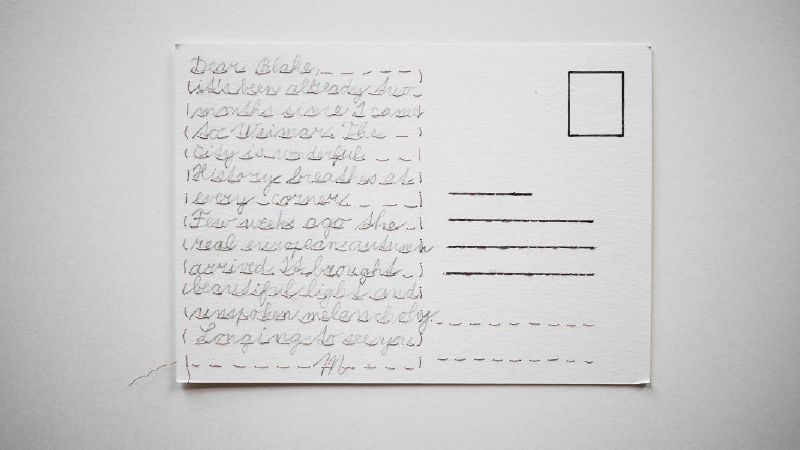 Dear Blake,
it's been already two
months since I came
to Weimar. The
City is wonderful.
History breathes at
every corner.
Few weeks ago the
real european autumn
arrived. It brought
beautiful light and
unspoken melancholy.
Longing to see you